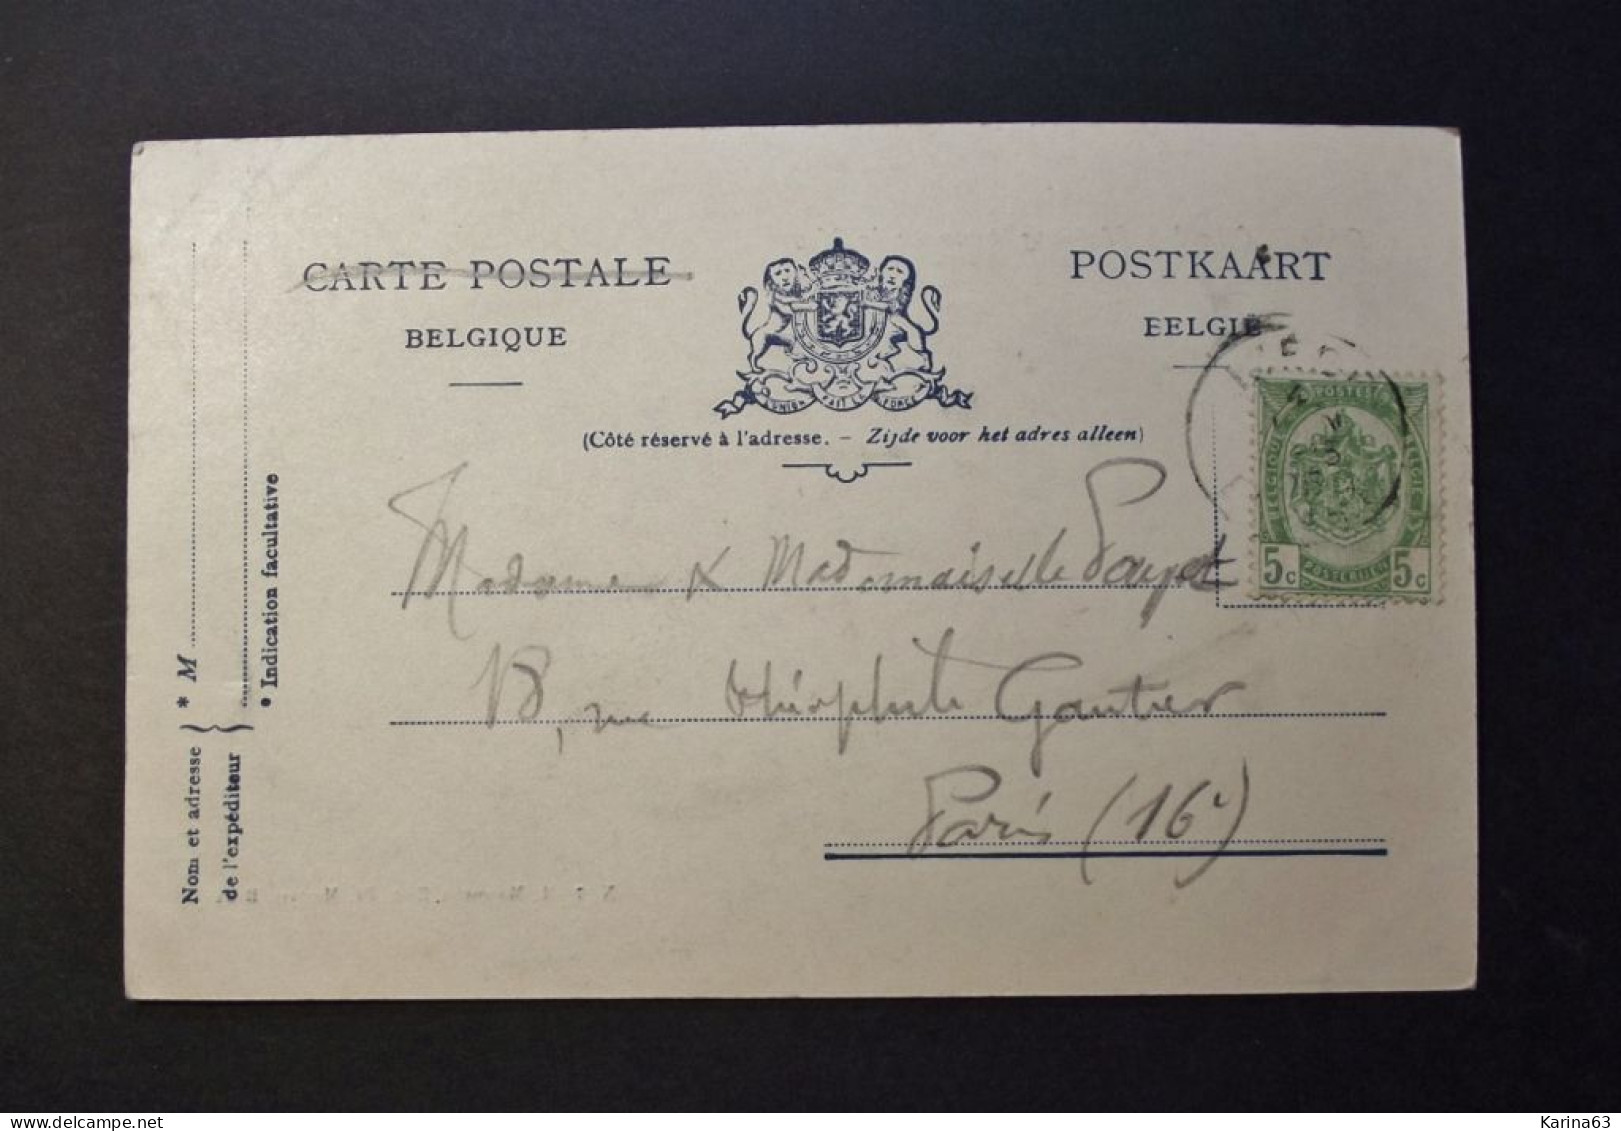 CARTE POSTALE
BELGIQUE
POSTKAART
BELGIË
L'UNION FAIT LA FORCE
(Côté réservé à l'adresse. – Zijde voor het adres alleen)
POSTES
BELGIQUE
BELGIE
5c POSTERIJEN 5c
Madame & Mademoiselle Pouget
18, rue Théophile Gautier
Paris (16e)
Nom et adresse
de l'expéditeur
* M
* Indication facultative
Karina63